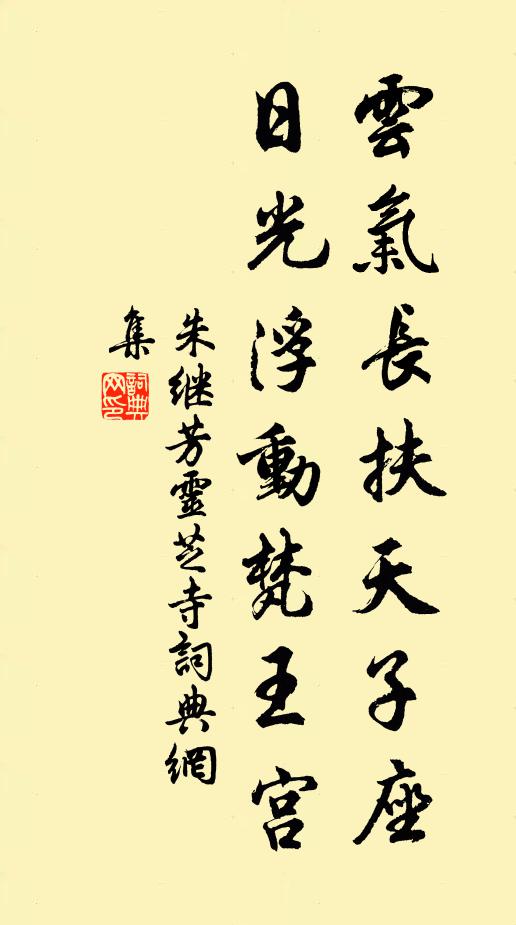 雲氣長扶天子座
日光浮動梵王宮
朱继芳靈芝寺詞典網
集
詞典
网印